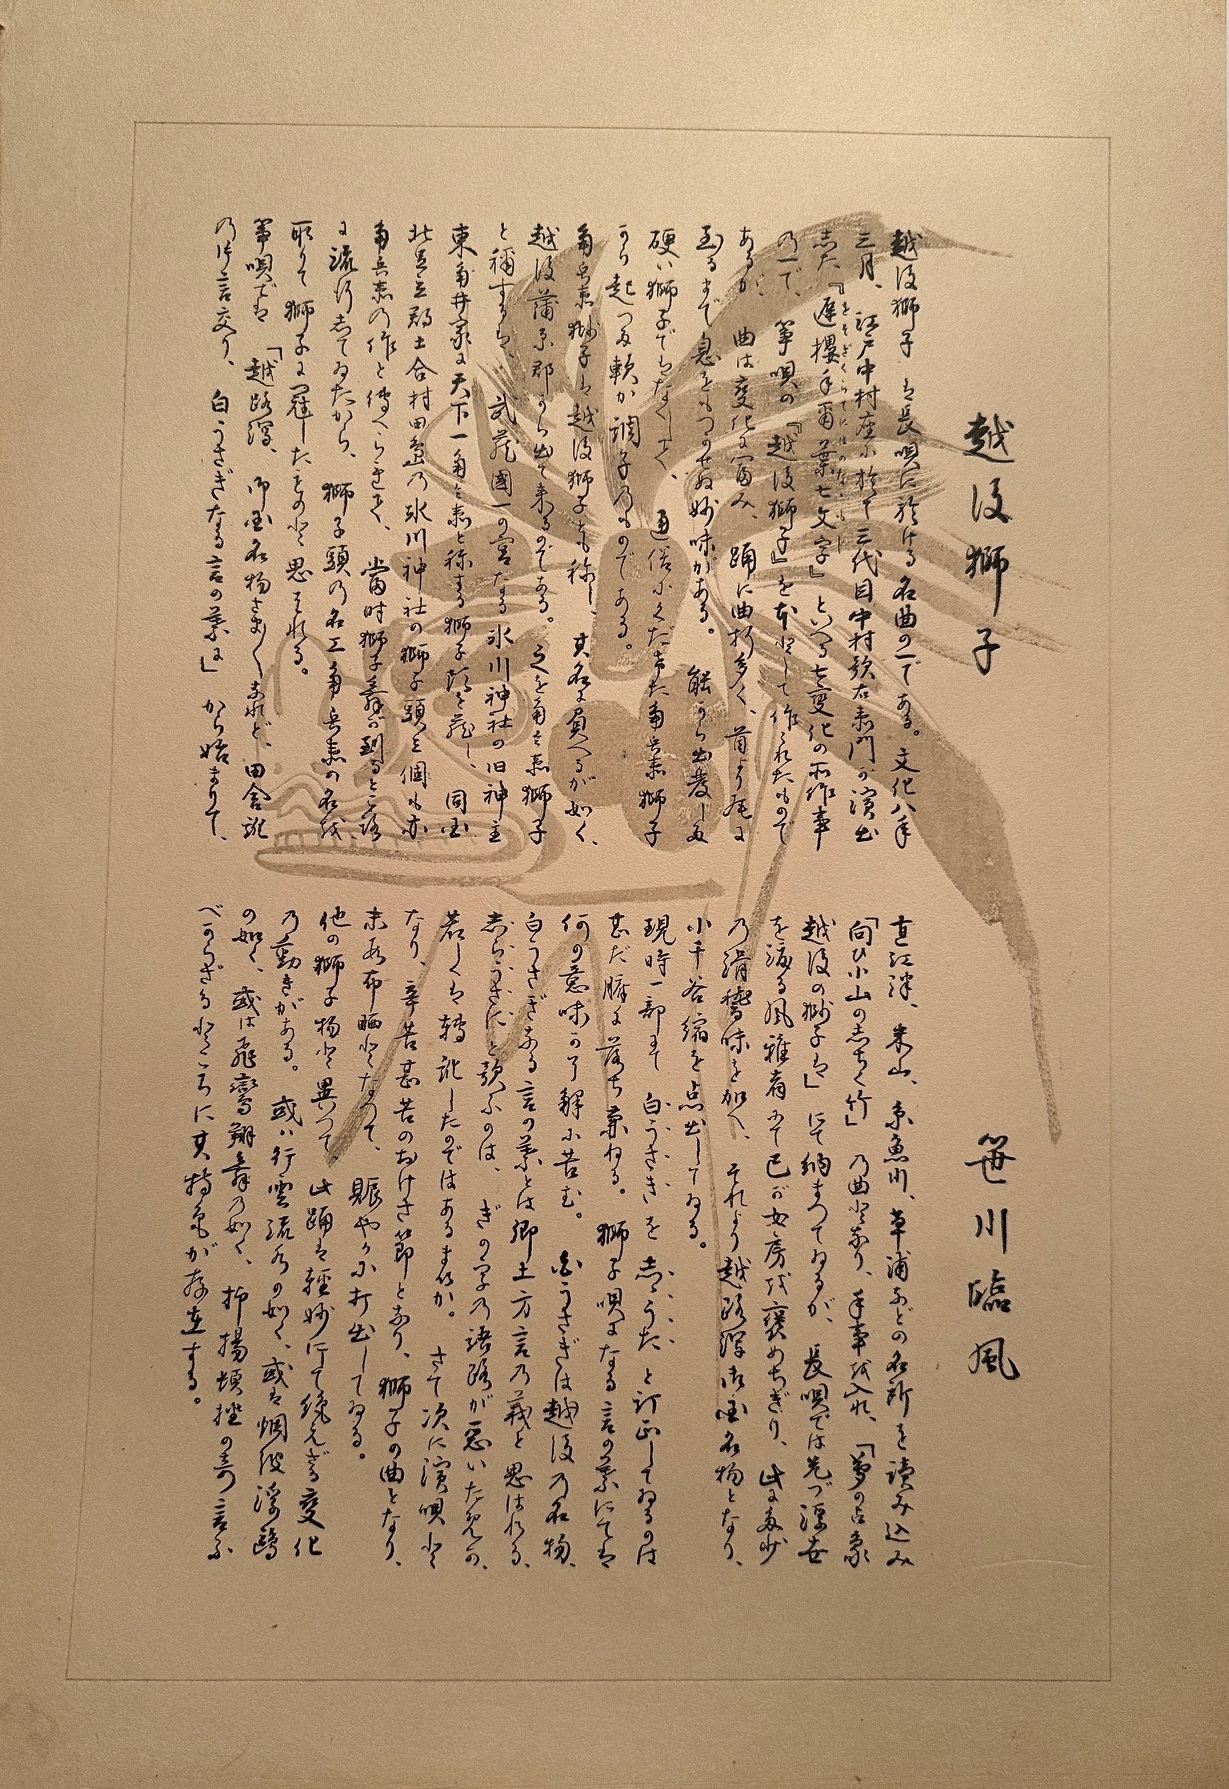 越後獅子
笹川臨風
越後獅子は長唄に於ける名曲の一である。文化八年
三月、江戸中村座に於て三代目中村歌右衛門が演出
した『遅櫻手爾葉七文字』といへる七変化の所作事
をそざくらてにはのなゝもじ
の一で、箏唄の『越後獅子』を本として作られたもので
あるが、曲は変化に富み、踊に曲折多く、首より尾に
至るまで息をもつかせぬ妙味がある。能から出発した
硬い獅子でもなくして、通俗にくだけた角兵衛獅子
から起つた軟か調子のものである。
角兵衛獅子は越後獅子とも称し、其名に負へるが如く、
越後蒲原郡から出て来るのである。之を角兵衛獅子
と稱するは、武蔵國一の宮なる氷川神社の旧神主
東角井家に天下一角兵衛と称する獅子頭を蔵し、同国
北足立郡土合村田島の氷川神社の獅子頭三個も亦
角兵衛の作と傳へらきて、當時獅子舞が到るところ
に流行してゐたから、獅子頭の名工角兵衛の名を
取りて獅子に冠したものと思はれる。
箏唄では「越路潟、御国名物さま〴〵あれど、田舎訛
の片言交り、白うさぎなる言の葉に」から始まりて、
直江津、米山、糸魚川、草浦などの名所を読み込み
「向ひ小山のしちく竹」の曲となり、手事を入れ、「夢の占象
越後の獅子は」にて納まつてゐるが、長唄では先づ浮世
を渡る風雅者にて己が女房を褒めちぎり、此に多少
の滑稽味を加へ、それより越路潟御国名物となり、
小千谷縮を点出してゐる。
現時一部にて白うさぎをしゞうたと訂正してゐるのは
甚だ腑に落ち兼ねる。獅子唄なる言の葉にては
何の意味か了解に苦む。白うさぎは越後の名物、
白うさぎなる言の葉とは郷土方言の義と思はれる、
しらうさぎにと歌ふのは、ぎの字の語路が悪いためか、
若しくは轉訛したのではあるまいか。さて次に濱唄と
なり、辛苦甚苦のおけさ節となり、獅子の曲となり、
末若布晒となつて、賑やかに打出してゐる。
他の獅子物と異つて、此踊は輕妙にて絶えざる変化
の動きがある。或は行雲流水の如く、或は烟波浮鷗
の如く、或は飛鸞翔舞の如く、抑揚頓挫の奇言ふ
べからざるところに其特色が存在する。